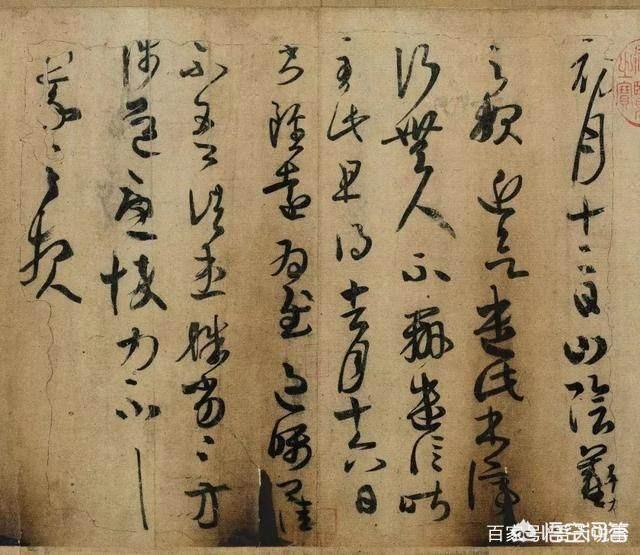 初月十二日山陰羲
之報近欲遣此書停
行無人不辦遣信昨
至此且得去月十六日
書雖遠為慰過囑卿佳
不吾諸患殊劣殊劣方
涉道憂悴力不具
羲之報
之寶
百家号
悟空问答